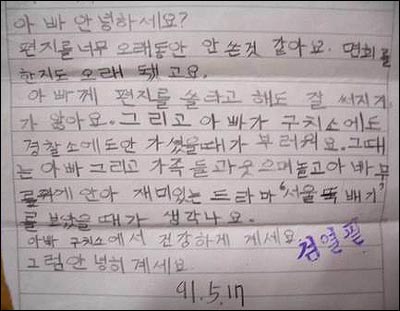 아빠 안녕하세요?
편지를 너무 오래동안 안 쓴것 같아요. 면회를
한지도 오래 됐고요.
아빠께 편지를 쓸라고 해도 잘 써지지
가 않아요. 그리고 아빠가 구치소에도
경찰소에도 안 가셨을때가 부러워요. 그때
는 아빠 그리고 가족들과 웃으며 놀고 아빠 무
릎에 안아 재미있는 드라마 "서울 뚝배기"
를 보았을때가 생각나요.
아빠 구치소에서 건강하게 게세요
그럼 안녕히 계세요
91.5.17